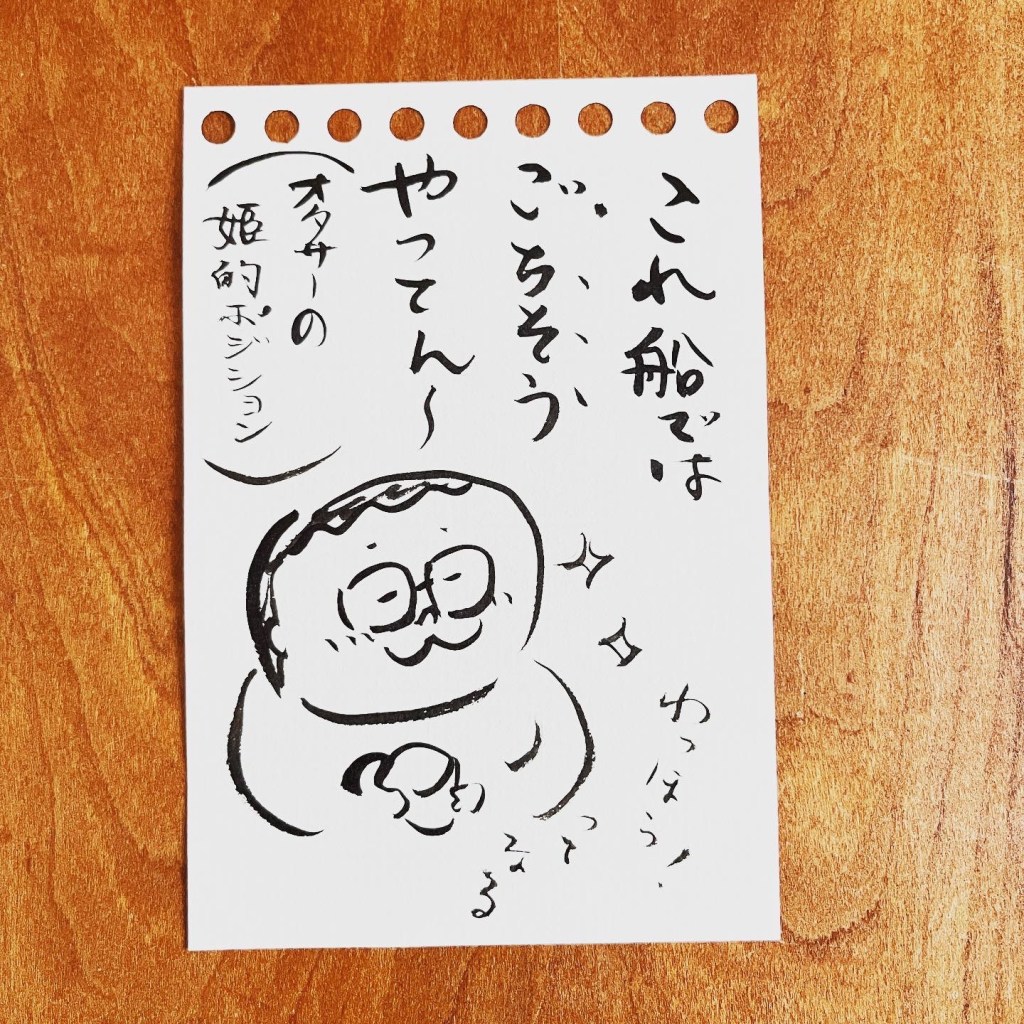 これ船では
ごちそう
やってん〜
（オタサーの
姫的ポジション）
わっほう！
って
なる